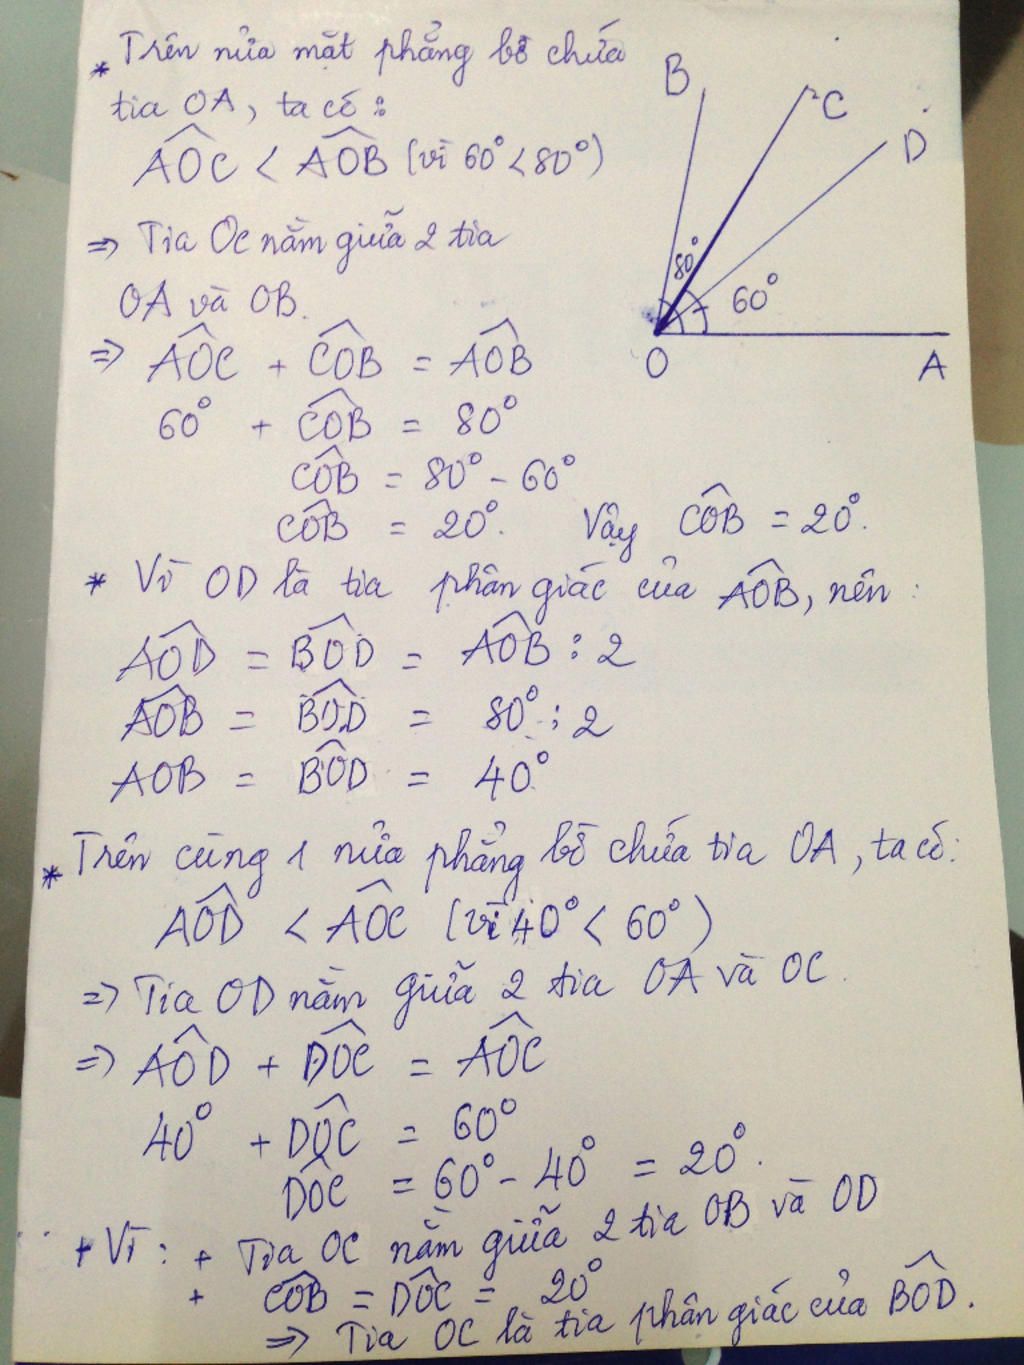 * Trên nửa mặt phẳng bờ chứa
tia OA, ta có:
AOC̑ < AOB̑ (vì 60° < 80°)
⇒ Tia OC nằm giữa 2 tia
OA và OB.
⇒ AÔC + CÔB = AÔB
60° + CÔB = 80°
CÔB = 80° - 60°
CÔB = 20°. Vậy CÔB = 20°.
* Vì OD là tia phân giác của AÔB, nên:
AÔD = BÔD = AÔB : 2
AÔB = BÔD = 80° : 2
AOB = BÔD = 40°
* Trên cùng 1 nửa phẳng bờ chứa tia OA, ta có:
AÔD < AÔC (vì 40° < 60°)
⇒ Tia OD nằm giữa 2 tia OA và OC.
⇒ AÔD + DÔC = AÔC
40° + DÔC = 60°
DÔC = 60° - 40° = 20°.
+ Vì: + Tia OC nằm giữa 2 tia OB và OD
+ CÔB = DÔC = 20°
⇒ Tia OC là tia phân giác của BÔD.
B
C
D
80°
60°
O
A